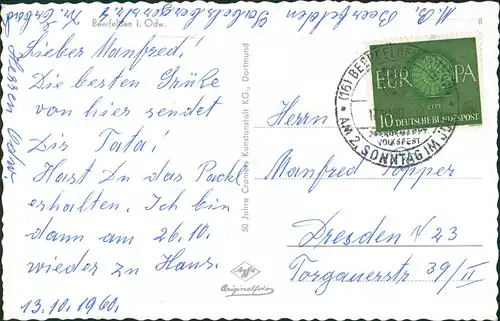 Beerfelden i. Odw.
8
Lieber Manfred!
Die besten Grüße
von hier sendet
Dir Tata!
Hast Du das Packl
erhalten. Ich bin
dann am 26.10.
wieder zu Haus.
13.10.1960.
Hessen Odw.
50 Jahre Cramers Kunstanstalt KG., Dortmund
Agfa
Originalfoto
(16) BEERFELDEN
VOLKSFEST
AM 2. SONNTAG IM JULI
EUROPA
CEPT
10 DEUTSCHE BUNDESPOST
Herrn
Manfred Popper
Dresden N 23
Torgauerstr 39/II